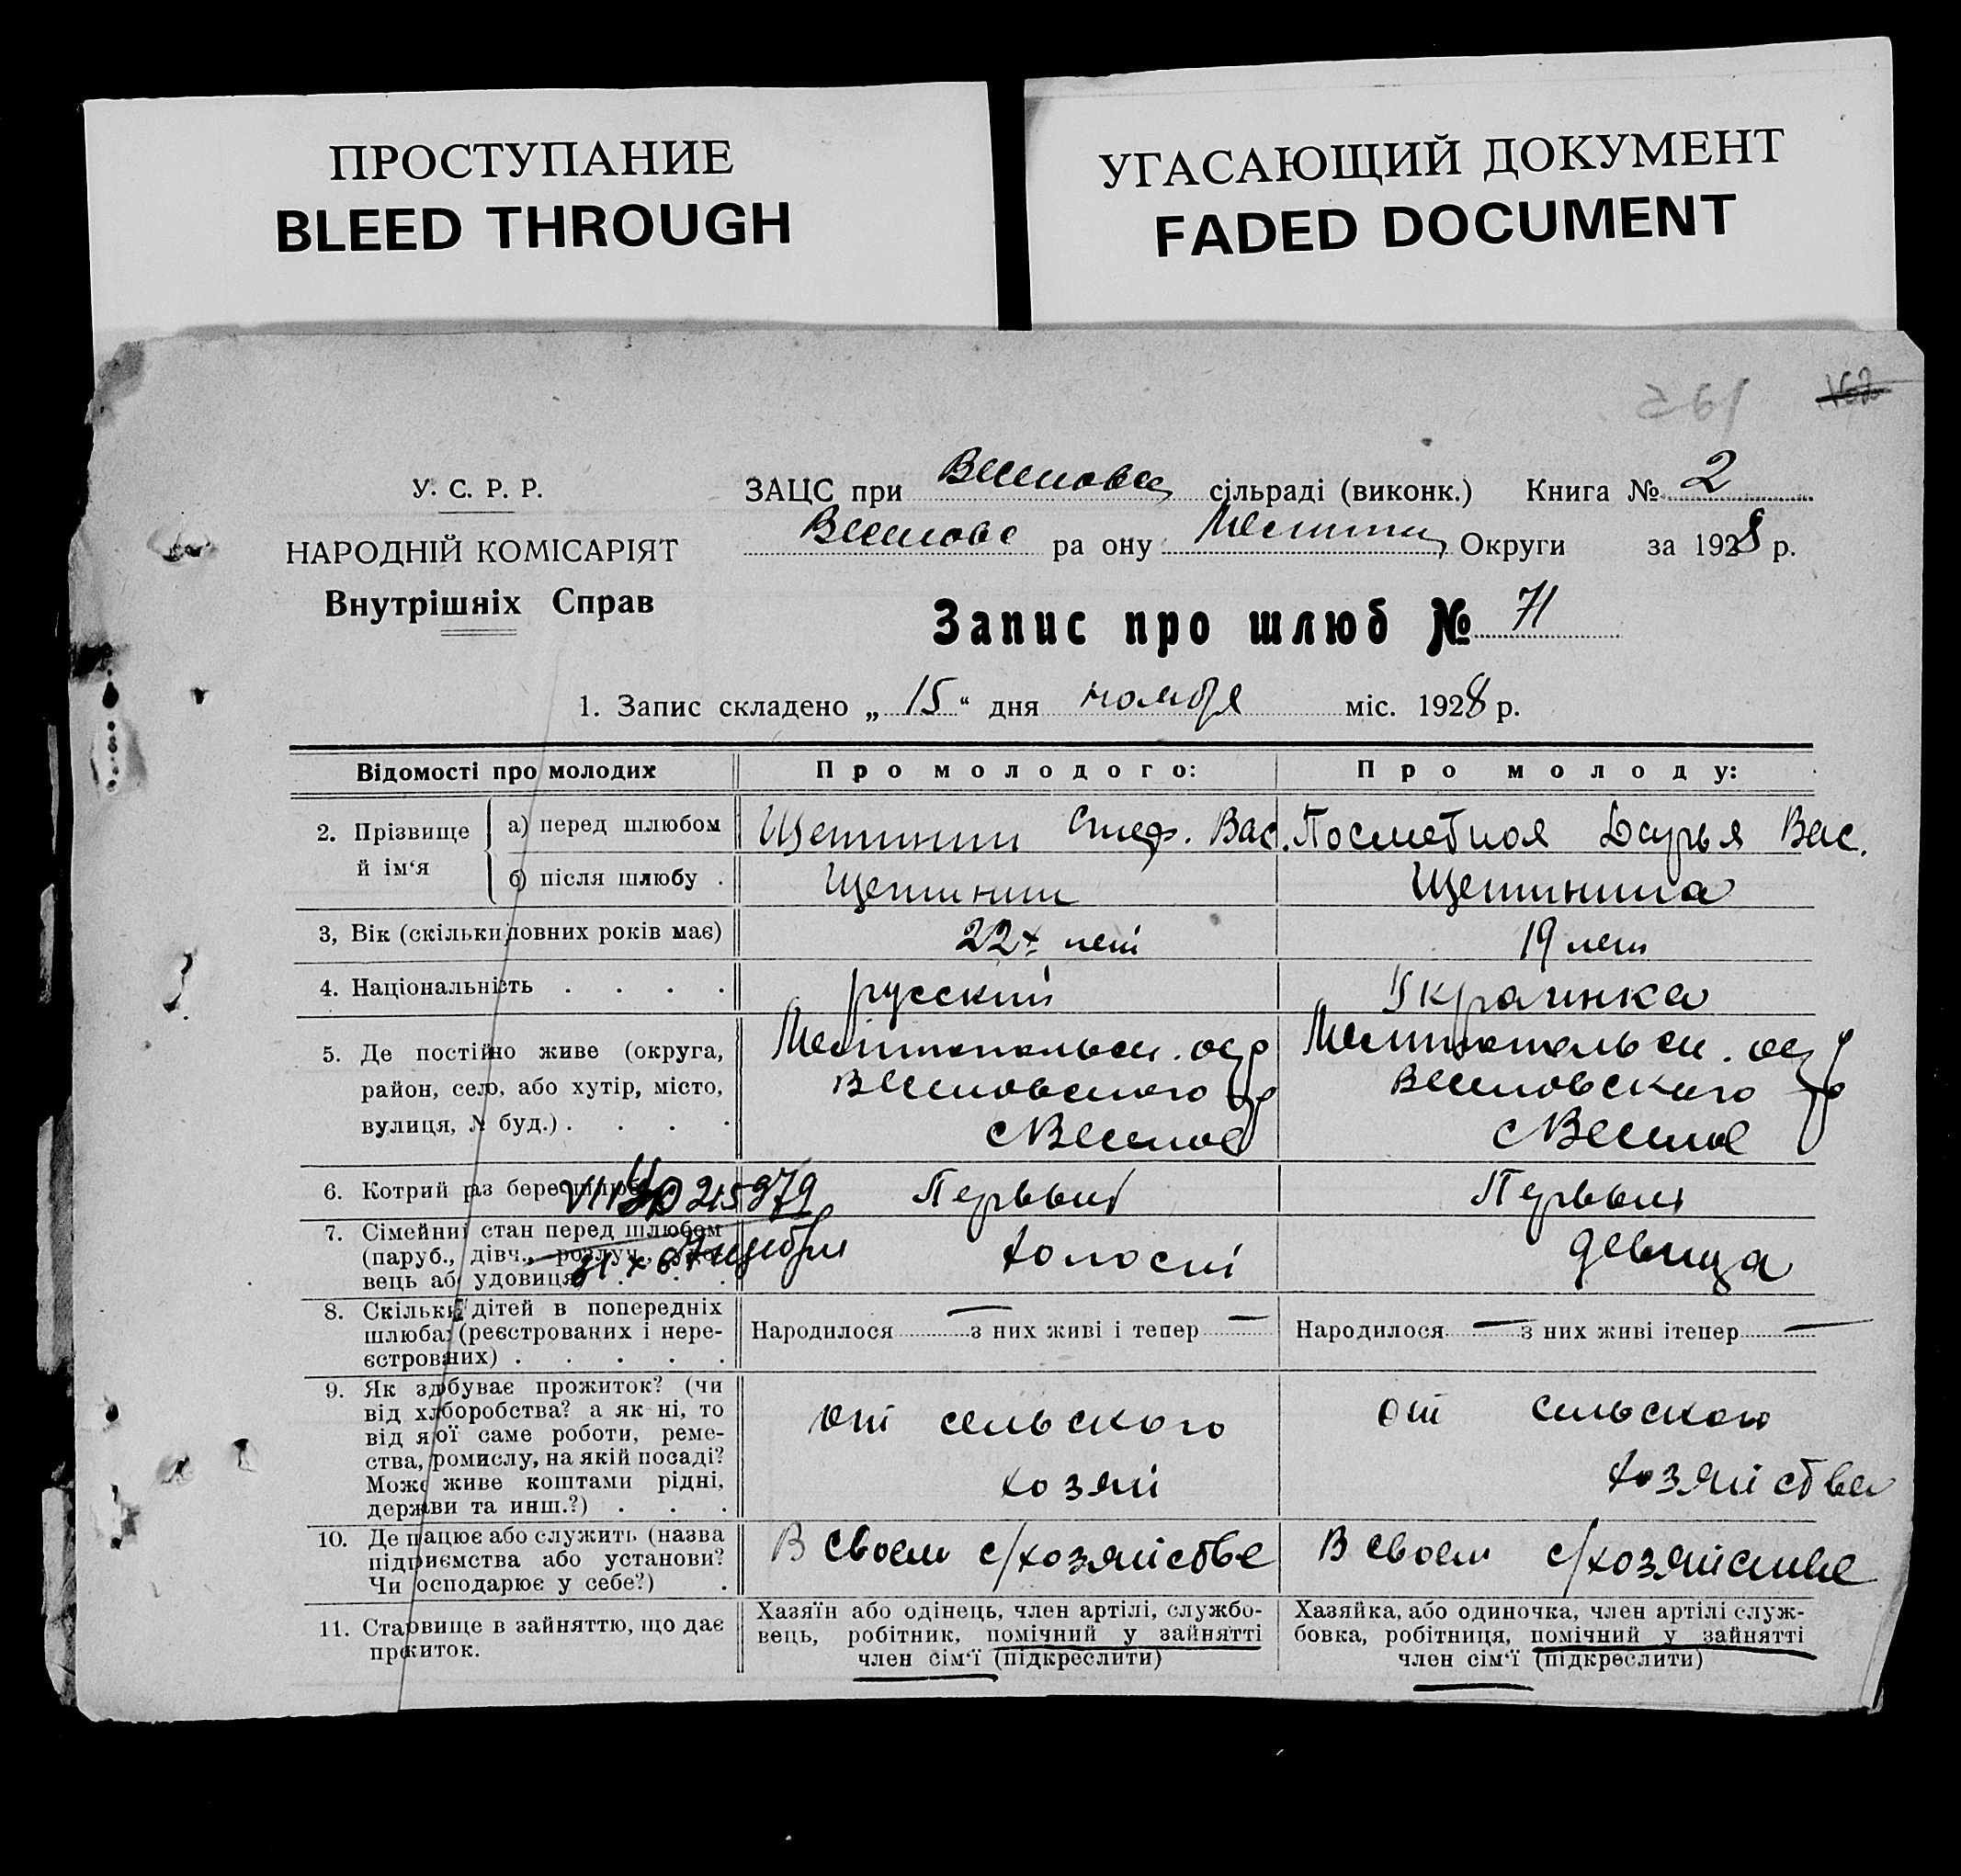 ПРОСТУПАНИЕ
BLEED THROUGH
УГАСАЮЩИЙ ДОКУМЕНТ
FADED DOCUMENT
261
У. С. Р. Р.
НАРОДНІЙ КОМІСАРІЯТ
Внутрішніх Справ
ЗАЦС при сільраді (виконк.) Книга № 2
ра ону Округи за 1928 р.
Запис про шлюб № 71
1. Запис складено „15“ дня ноября міс. 1928 р.
Відомості про молодих
Про молодого:
Про молоду:
2. Прізвище й ім‘я
а) перед шлюбом
Щетинин Стеф. Вас.
Посметная Дарья Вас.
б) після шлюбу .
Щетинин
Щетинина
3, Вік (скільки повних років має)
22х лет
19 лет
4. Національність . . . .
русский
Украинка
5. Де постійно живе (округа,
район, село, або хутір, місто,
вулиця, № буд.) . . . .
Мелитопольск. окр
Веселовского р
с Веселое
Мелитопольск. окр
Веселовского р
с Веселое
6. Котрий раз бере шлюб
Первый
Первый
7. Сімейний стан перед шлюбом
(паруб., дівч., розлуч.,
вець або удовиця)
холост
девица
8. Скільки дітей в попередніх
шлюбах (реєстрованих і нере-
єстрованих) . . . . .
Народилося — з них живі і тепер —
Народилося — з них живі ітепер —
9. Як здобуває прожиток? (чи
від хлборобства? а як ні, то
від якої саме роботи, реме-
ства, промислу, на якій посаді?
Може живе коштами рідні,
держави та инш.?) . . .
от сельского
хозяй
от сельского
хозяйства
10. Де працює або служить (назва
підприємства або установи?
Чи господарює у себе?) .
В своем с/хозяйстве
В своем с/хозяйстве
11. Становище в зайняттю, що дає
прожиток.
Хазяїн або одінець, член артілі, службо-
вець, робітник, помічний у зайнятті
член сім‘ї (підкреслити)
Хазяйка, або одиночка, член артілі служ-
бовка, робітниця, помічний у зайнятті
член сім‘ї (підкреслити)